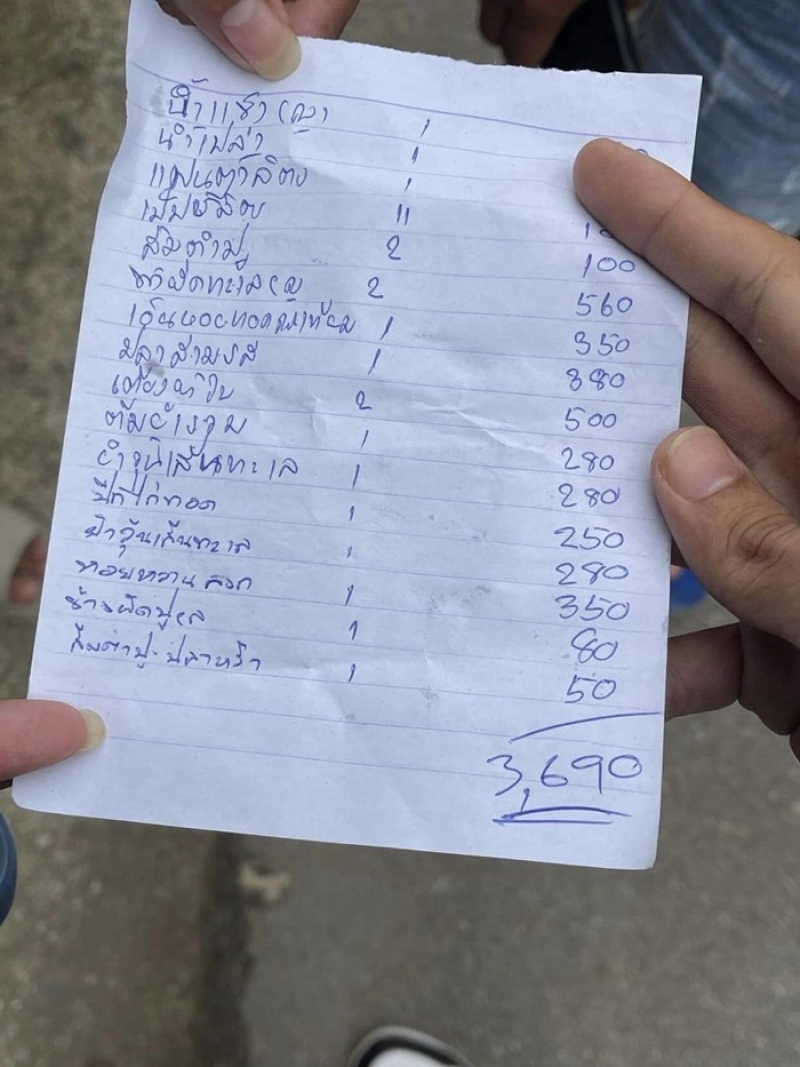 น้ำแข็งเปล่า 1
น้ำเปล่า 1
แฟนต้าลิตร 1
เป๊ปซี่ลิตร 11
ส้มตำปู 2 100
2 560
เอ็นหอยทอดกระเทียม 1 350
ปลาสามรส 1 380
2 500
ต้มยำรวม 1 280
ยำวุ้นเส้นทะเล 1 280
ปีกไก่ทอด 1 250
ยำวุ้นเส้นทะเล 1 280
หอยหวานลวก 1 350
ข้าวผัดปูเล็ก 1 80
ส้มตำปู-ปลาร้า 1 50
3,690